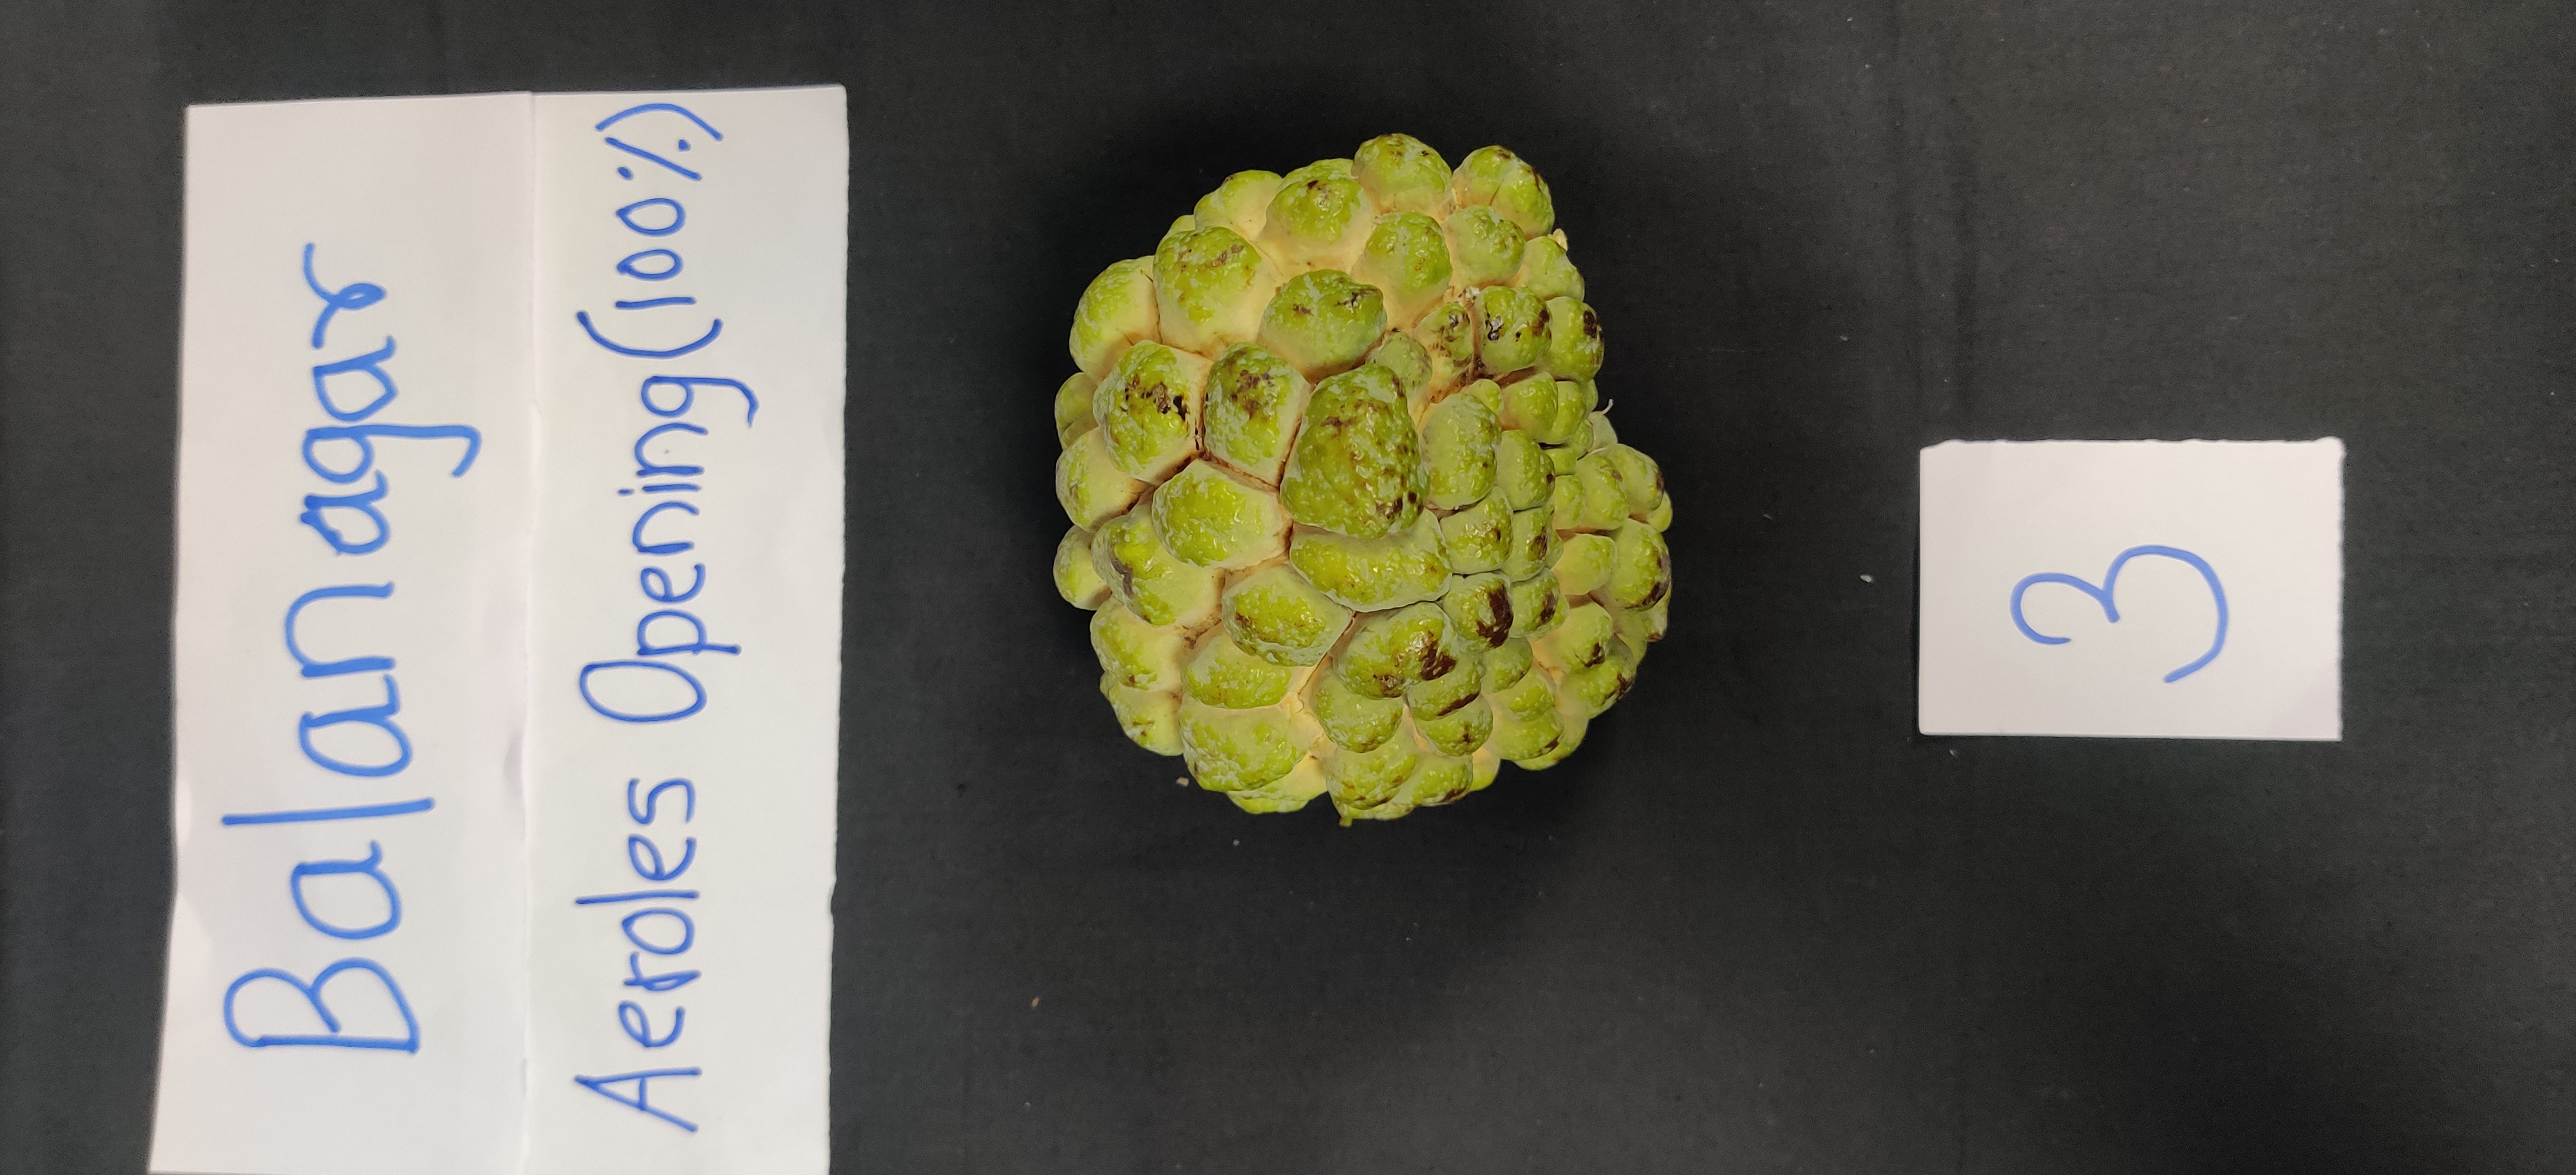 Balanagar
Aeroles Opening(100%)
3